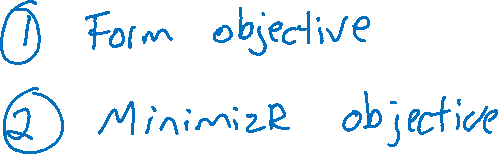 ① Form objective
② Minimize objective